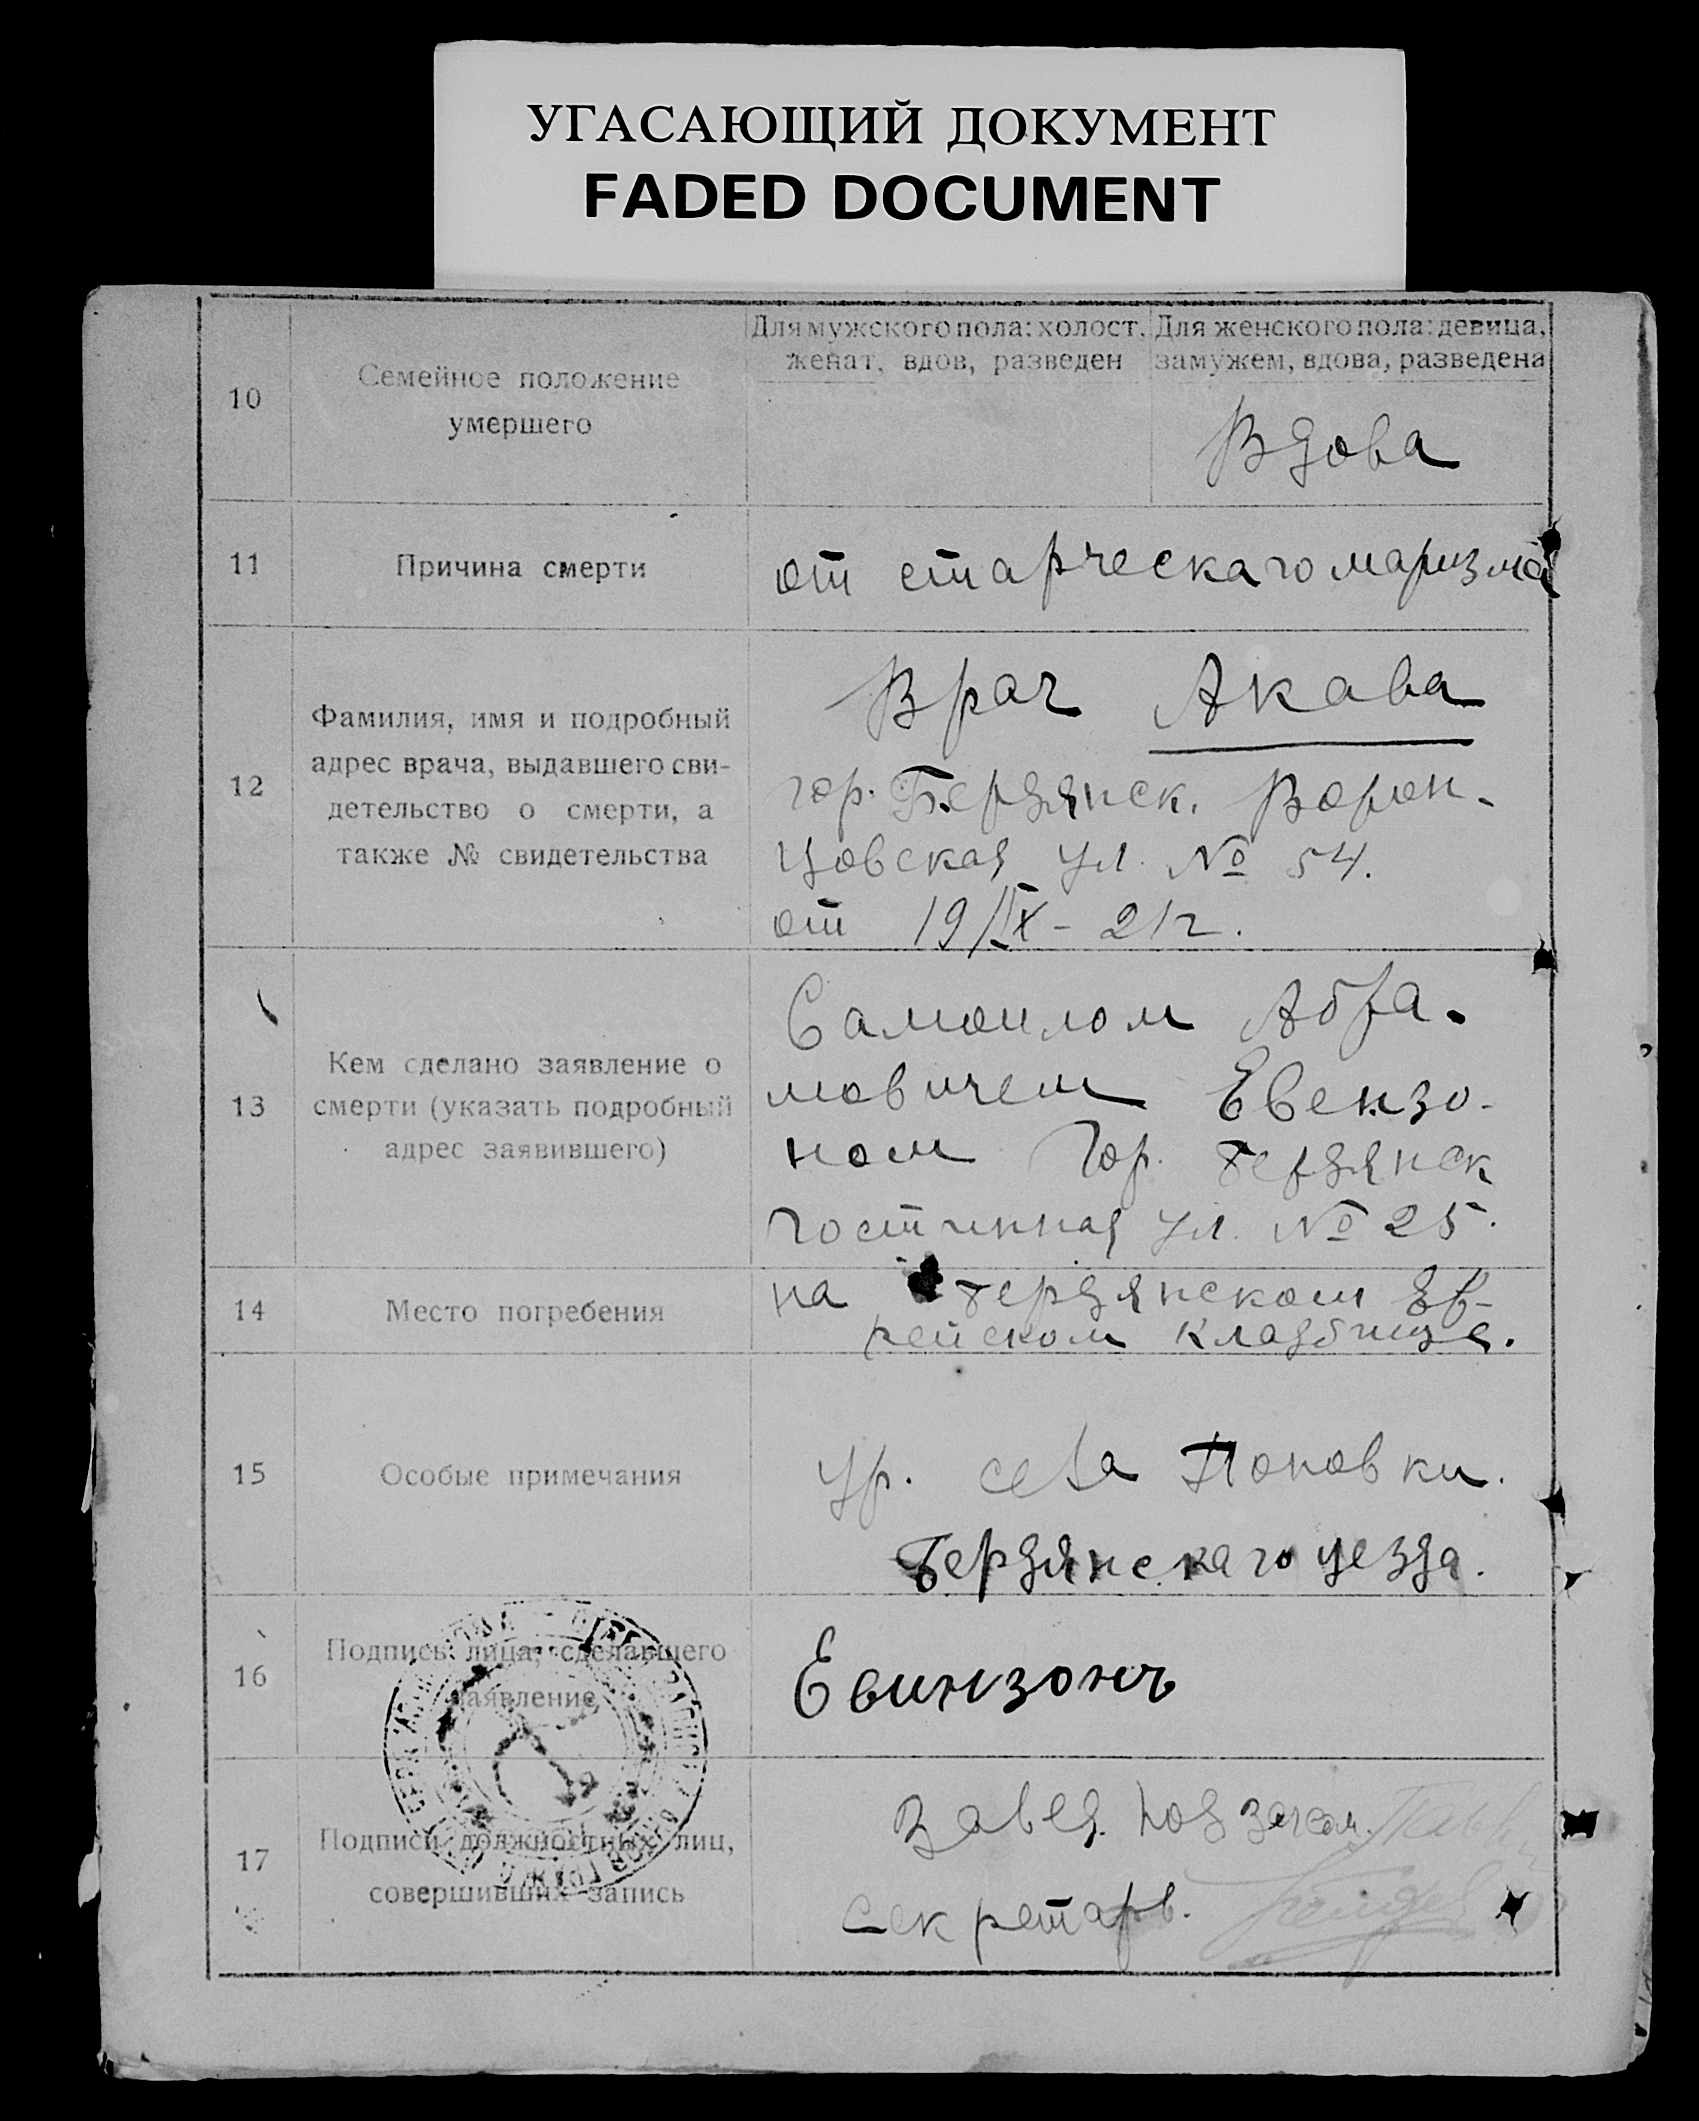 УГАСАЮЩИЙ ДОКУМЕНТ
FADED DOCUMENT
10
Семейное положение
умершего
Для мужского пола: холост,
женат, вдов, разведен
Для женского пола: девица,
замужем, вдова, разведена
Вдова
11
Причина смерти
от старческаго маризма
12
Фамилия, имя и подробный
адрес врача, выдавшего сви-
детельство о смерти, а
также № свидетельства
Врач Акава
гор. Бердянск. Ворон-
цовская ул. № 54.
от 19/IX - 21 г.
13
Кем сделано заявление о
смерти (указать подробный
адрес заявившего)
Самоилом Абра-
мовичем Евензо-
ном Гор. Бердянск
Гостинная ул. № 25.
14
Место погребения
на Бердянском Ев-
рейском кладбище.
15
Особые примечания
ур. села Поповки.
Бердянскаго уезда.
16
Подпись лица, сделавшего
заявление
Евинзонъ
17
Подписи должностных лиц,
совершивших запись
Завед. Под
секретарь.